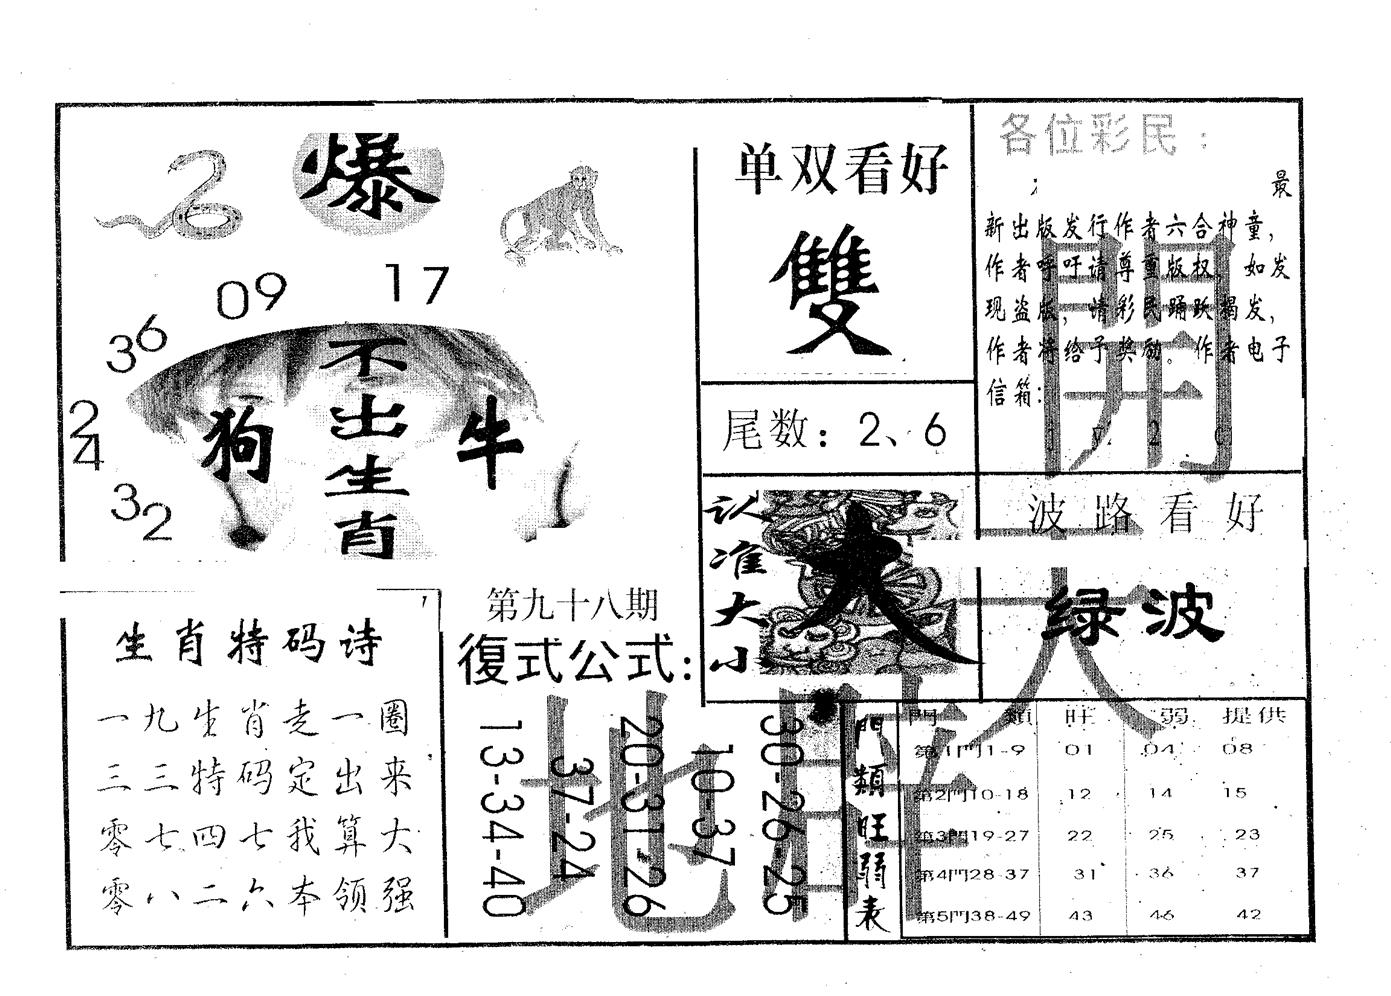 爆
09
17
36
24
32
不出生肖
狗
牛
单双看好
雙
尾数：2、6
认准大小
大
各位彩民：
最
新出版发行作者六合神童，
作者呼吁请尊重版权，如发
现盗版，请彩民踊跃揭发，
作者将给予奖励。作者电子
信箱：
波路看好
绿波
生肖特码诗
一九生肖走一圈
三三特码定出来
零七四七我算大
零八二六本领强
第九十八期
復式公式：
13-34-40
37-24
20-31-26
10-37
30-26-25
門類旺弱表
門類 旺 弱 提供
第1門1-9 01 04 08
第2門10-18 12 14 15
第3門19-27 22 25 23
第4門28-37 31 36 37
第5門38-49 43 46 42
開
天
地